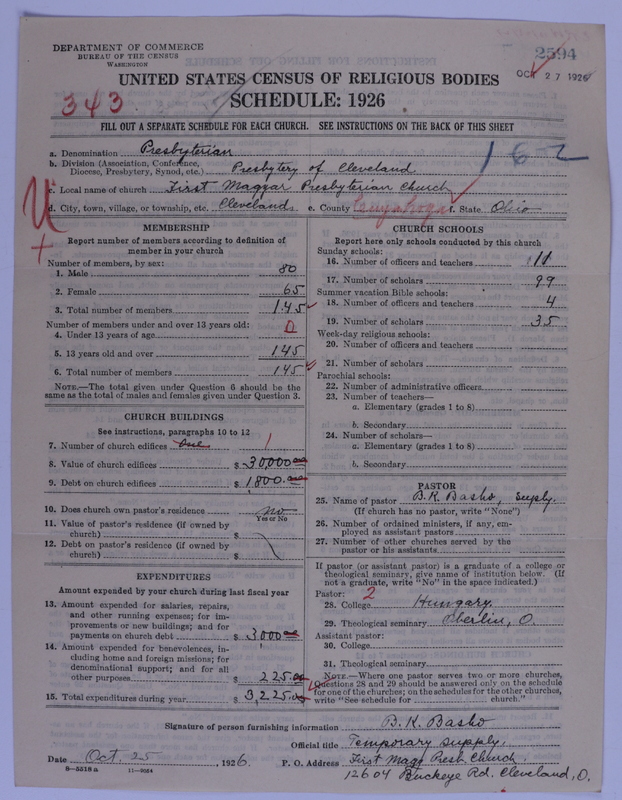 DEPARTMENT OF COMMERCE
BUREAU OF THE CENSUS
WASHINGTON
2594
OCT 27 1926
UNITED STATES CENSUS OF RELIGIOUS BODIES
SCHEDULE: 1926
343
FILL OUT A SEPARATE SCHEDULE FOR EACH CHURCH. SEE INSTRUCTIONS ON THE BACK OF THIS SHEET
162
a. Denomination Presbyterian
b. Division (Association, Conference, Diocese, Presbytery, Synod, etc.) Presbytery of Cleveland
c. Local name of church First Magyar Presbyterian Church
d. City, town, village, or township, etc. Cleveland e. County Cuyahoga f. State Ohio
U
+
MEMBERSHIP
Report number of members according to definition of
member in your church
Number of members, by sex:
1. Male 80
2. Female 65
3. Total number of members 145
Number of members under and over 13 years old:
4. Under 13 years of age 0
5. 13 years old and over 145
6. Total number of members 145
NOTE.—The total given under Question 6 should be
same as the total of males and females given under Question 3.
CHURCH BUILDINGS
See instructions, paragraphs 10 to 12
7. Number of church edifices one 1
8. Value of church edifices $ 30,000
9. Debt on church edifices $ 1800.
10. Does church own pastor's residence no
Yes or No
11. Value of pastor's residence (if owned by
church) $
12. Debt on pastor's residence (if owned by
church) $
EXPENDITURES
Amount expended by your church during last fiscal year
13. Amount expended for salaries, repairs,
and other running expenses; for im-
provements or new buildings; and for
payments on church debt $ 3000
14. Amount expended for benevolences, in-
cluding home and foreign missions; for
denominational support; and for all
other purposes $ 225.00
15. Total expenditures during year $ 3,225.00
CHURCH SCHOOLS
Report here only schools conducted by this church
Sunday schools:
16. Number of officers and teachers 11
17. Number of scholars 99
Summer vacation Bible schools:
18. Number of officers and teachers 4
19. Number of scholars 35
Week-day religious schools:
20. Number of officers and teachers
21. Number of scholars
Parochial schools:
22. Number of administrative officers
23. Number of teachers—
a. Elementary (grades 1 to 8)
b. Secondary
24. Number of scholars—
a. Elementary (grades 1 to 8)
b. Secondary
PASTOR
25. Name of pastor B. K. Basho, supply.
(If church has no pastor, write "None")
26. Number of ordained ministers, if any, em-
ployed as assistant pastors
27. Number of other churches served by the
pastor or his assistants
If pastor (or assistant pastor) is a graduate of a college or
theological seminary, give name of institution below. (If
not a graduate, write "No" in the space indicated.)
Pastor: 2
28. College Hungary.
29. Theological seminary Oberlin, O.
Assistant pastor:
30. College
31. Theological seminary
NOTE.—Where one pastor serves two or more churches,
Questions 28 and 29 should be answered only on the schedule
for one of the churches; on the schedules for the other churches,
write "See schedule for church."
Signature of person furnishing information B. K. Basho
Official title Temporary supply.
Date Oct. 25, 1926. P. O. Address First Mag. Presb. Church
12604 Buckeye Rd. Cleveland, O.
8—5318 a 11—9084